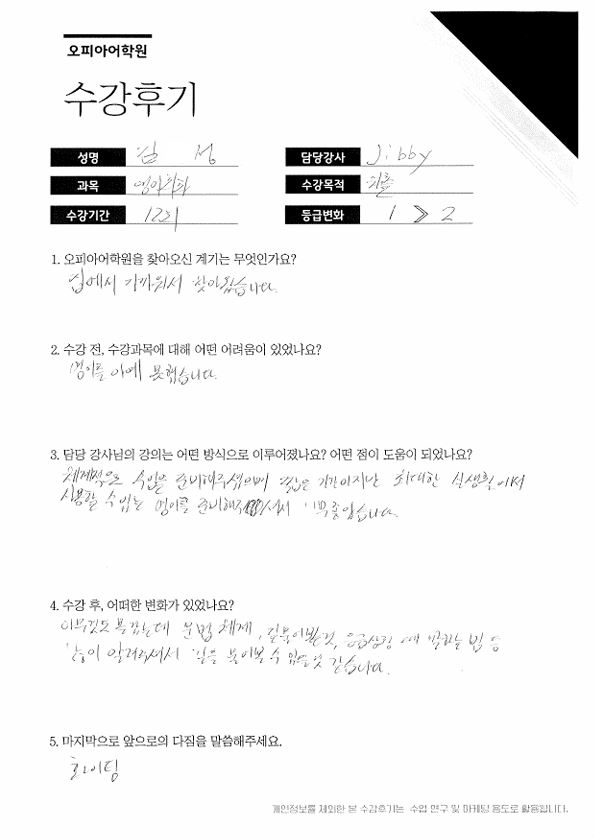 오피아어학원
수강후기
성명 김 성
담당강사 Jibby
과목 영어회화
수강목적
수강기간 12회
등급변화 1 》 2
1. 오피아어학원을 찾아오신 계기는 무엇인가요?
집에서 가까워서 찾아왔습니다.
2. 수강 전, 수강과목에 대해 어떤 어려움이 있었나요?
영어를 아예 못했습니다.
3. 담당 강사님의 강의는 어떤 방식으로 이루어졌나요? 어떤 점이 도움이 되었나요?
체계적으로 수업을 준비해주셨으며 짧은 기간이지만 최대한 실생활에서
사용할 수 있는 영어를 준비해주셔서 너무 좋았습니다.
4. 수강 후, 어떠한 변화가 있었나요?
아무것도 몰랐는데 문법 체계, 길 물어보는것, 응급상황에 말하는 법 등
많이 알려주셔서 길을 물어볼 수 있을것 같습니다.
5. 마지막으로 앞으로의 다짐을 말씀해주세요.
화이팅
개인정보를 제외한 본 수강후기는 수업 연구 및 마케팅 용도로 활용됩니다.